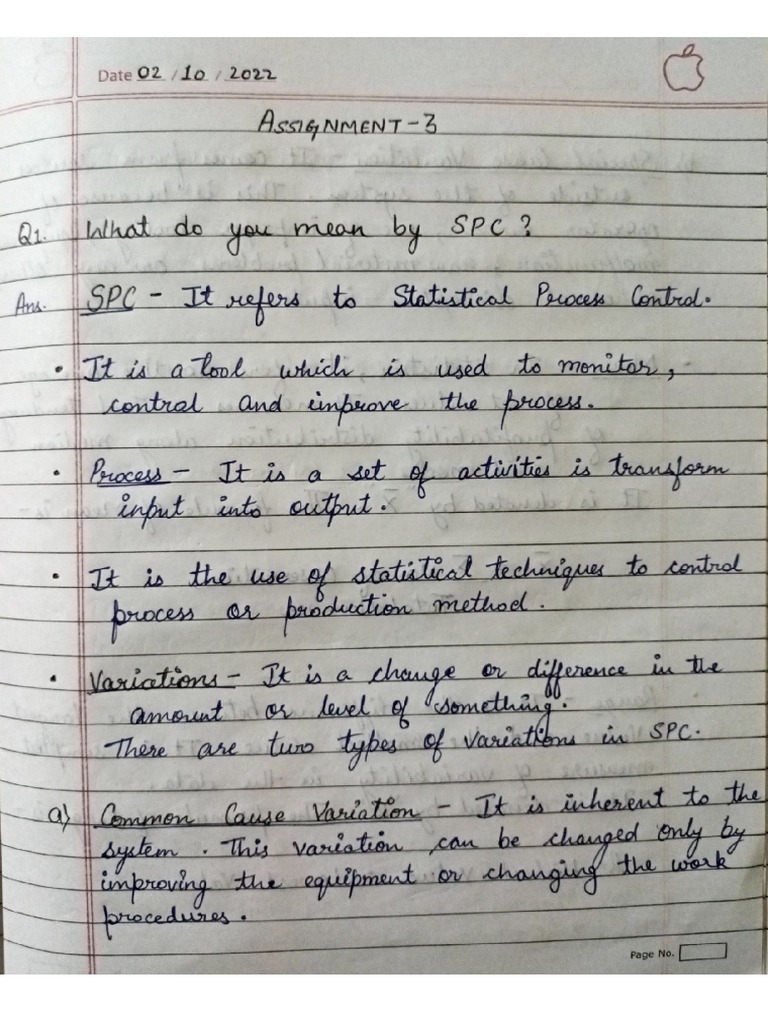 Date 02 / 10 / 2022
ASSIGNMENT-3
Q1. What do you mean by SPC?
Ans. SPC - It refers to Statistical Process Control.
• It is a tool which is used to monitor,
control and improve the process.
• Process - It is a set of activities is transform
input into output.
• It is the use of statistical techniques to control
process or production method.
• Variations - It is a change or difference in the
amount or level of something.
There are two types of variations in SPC.
a) Common Cause Variation - It is inherent to the
system. This variation can be changed only by
improving the equipment or changing the work
procedures.
Page No.